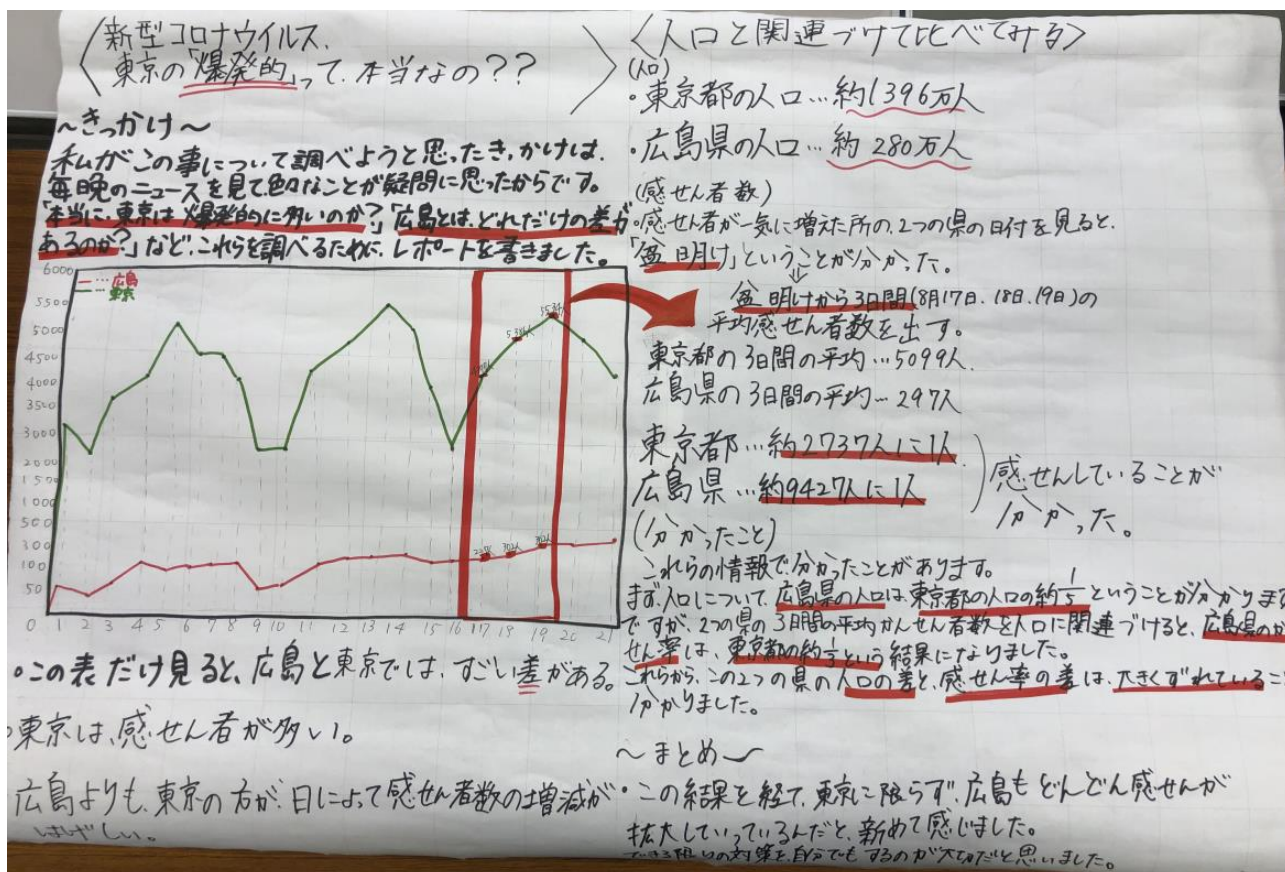 新型コロナウイルス、
東京の「爆発的」って、本当なの??
~きっかけ~
私がこの事について調べようと思ったきっかけは、
毎晩のニュースを見て色々なことが疑問に思ったからです。
「本当に東京は爆発的に多いのか?」「広島とは、どれだけの差が
あるのか?」など、これらを調べるために、レポートを書きました。
6000
5500
5000
4500
4000
3500
3000
2000
1500
1000
500
300
100
50
0 1 2 3 4 5 6 7 8 9 10 11 12 13 14 15 16 17 18 19 20 21
広島
東京
5534人
302人
・この表だけ見ると、広島と東京では、すごい差がある。
東京は、感せん者が多い。
広島よりも、東京の方が、日によって感せん者数の増減が
はげしい。
〈人口と関連づけて比べてみる〉
(人口)
・東京都の人口…約1396万人
・広島県の人口…約280万人
(感せん者数)
・感せん者が一気に増えた所の、2つの県の日付を見ると、
「盆明け」ということが分かった。
盆明けから3日間(8月17日、18日、19日)の
平均感せん者数を出す。
東京都の3日間の平均…5099人
広島県の3日間の平均…297人
東京都…約2737人に1人
広島県…約9427人に1人
感せんしていることが
分かった。
(分かったこと)
これらの情報で分かったことがあります。
まず、人口について、広島県の人口は、東京都の人口の約1/5ということが分かりま
ですが、2つの県の3日間の平均かんせん者数を人口に関連づけると、広島県のか
せん率は、東京都の約1/3という結果になりました。
これらから、この2つの県の人口の差と、感せん率の差は、大きくずれているこ
分かりました。
~まとめ~
・この結果を経て、東京に限らず、広島もどんどん感せんが
拡大していっているんだと、新めて感じました。
できる限りの対策を、自分でもするのが大切だと思いました。